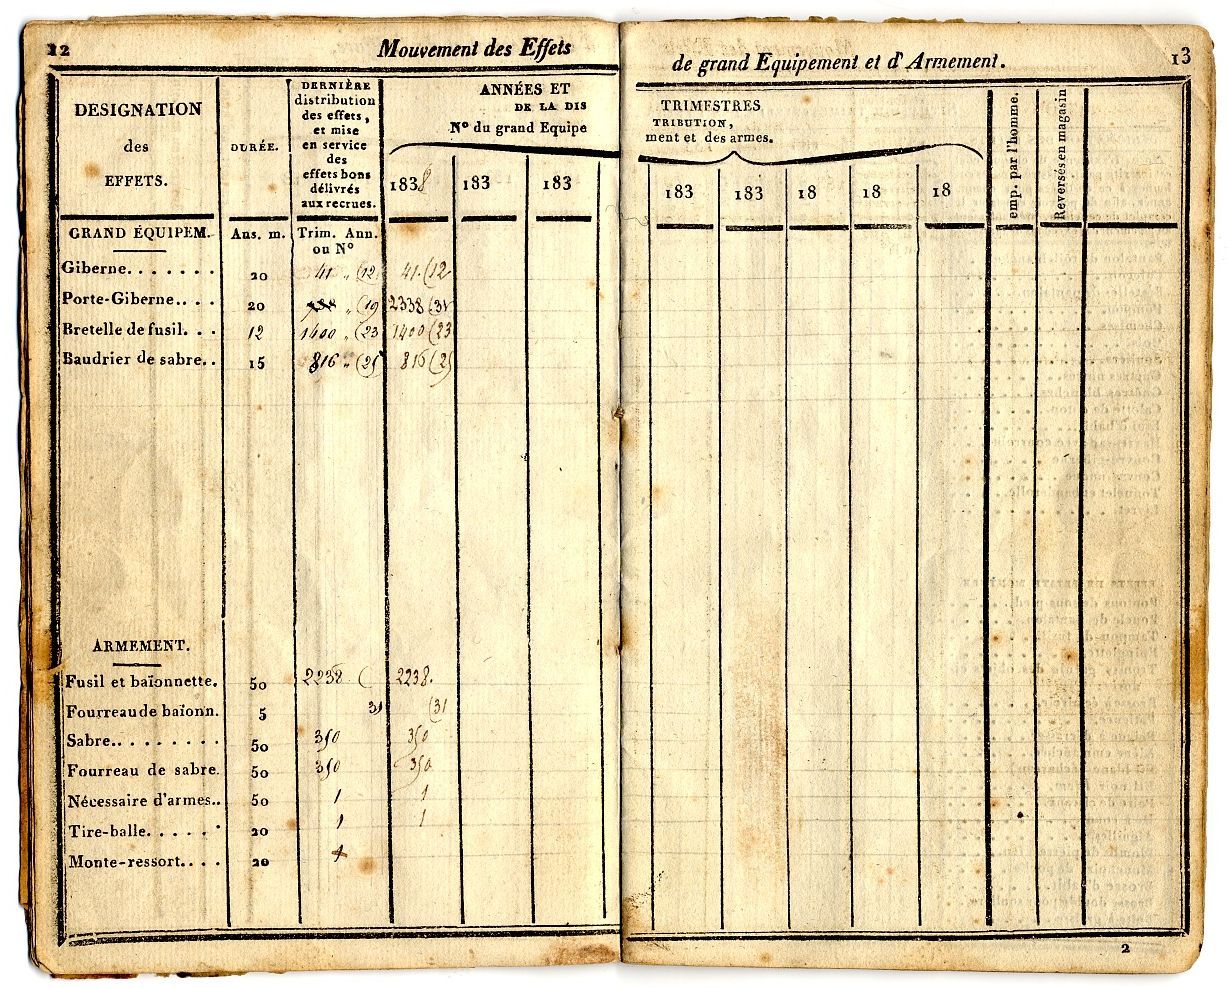 12
Mouvement des Effets
DESIGNATION
des
EFFETS.
DURÉE.
DERNIÈRE
distribution
des effets,
et mise
en service
des
effets bons
délivrés
aux recrues.
ANNÉES ET
DE LA DIS
Nº du grand Equipe
1838 183 183
GRAND ÉQUIPEM. Ans. m. Trim. Ann.
ou Nº
Giberne....... 20 41 „ (12) 41 (12
Porte-Giberne.... 20 „ (19 2338 (31
Bretelle de fusil... 12 1400 „ (23 1400 (23
Baudrier de sabre.. 15 816 „ (25) 816 (25
ARMEMENT.
Fusil et baïonnette. 50 2238 ( 2238.
Fourreau de baïonn. 5 31 (31
Sabre......... 50 350 350
Fourreau de sabre. 50 350 350
Nécessaire d'armes.. 50 1 1
Tire-balle...... 20 1 1
Monte-ressort.... 20
de grand Equipement et d'Armement.
13
TRIMESTRES
TRIBUTION,
ment et des armes.
183 183 18 18 18
emp. par l'homme.
Reversés en magasin
2